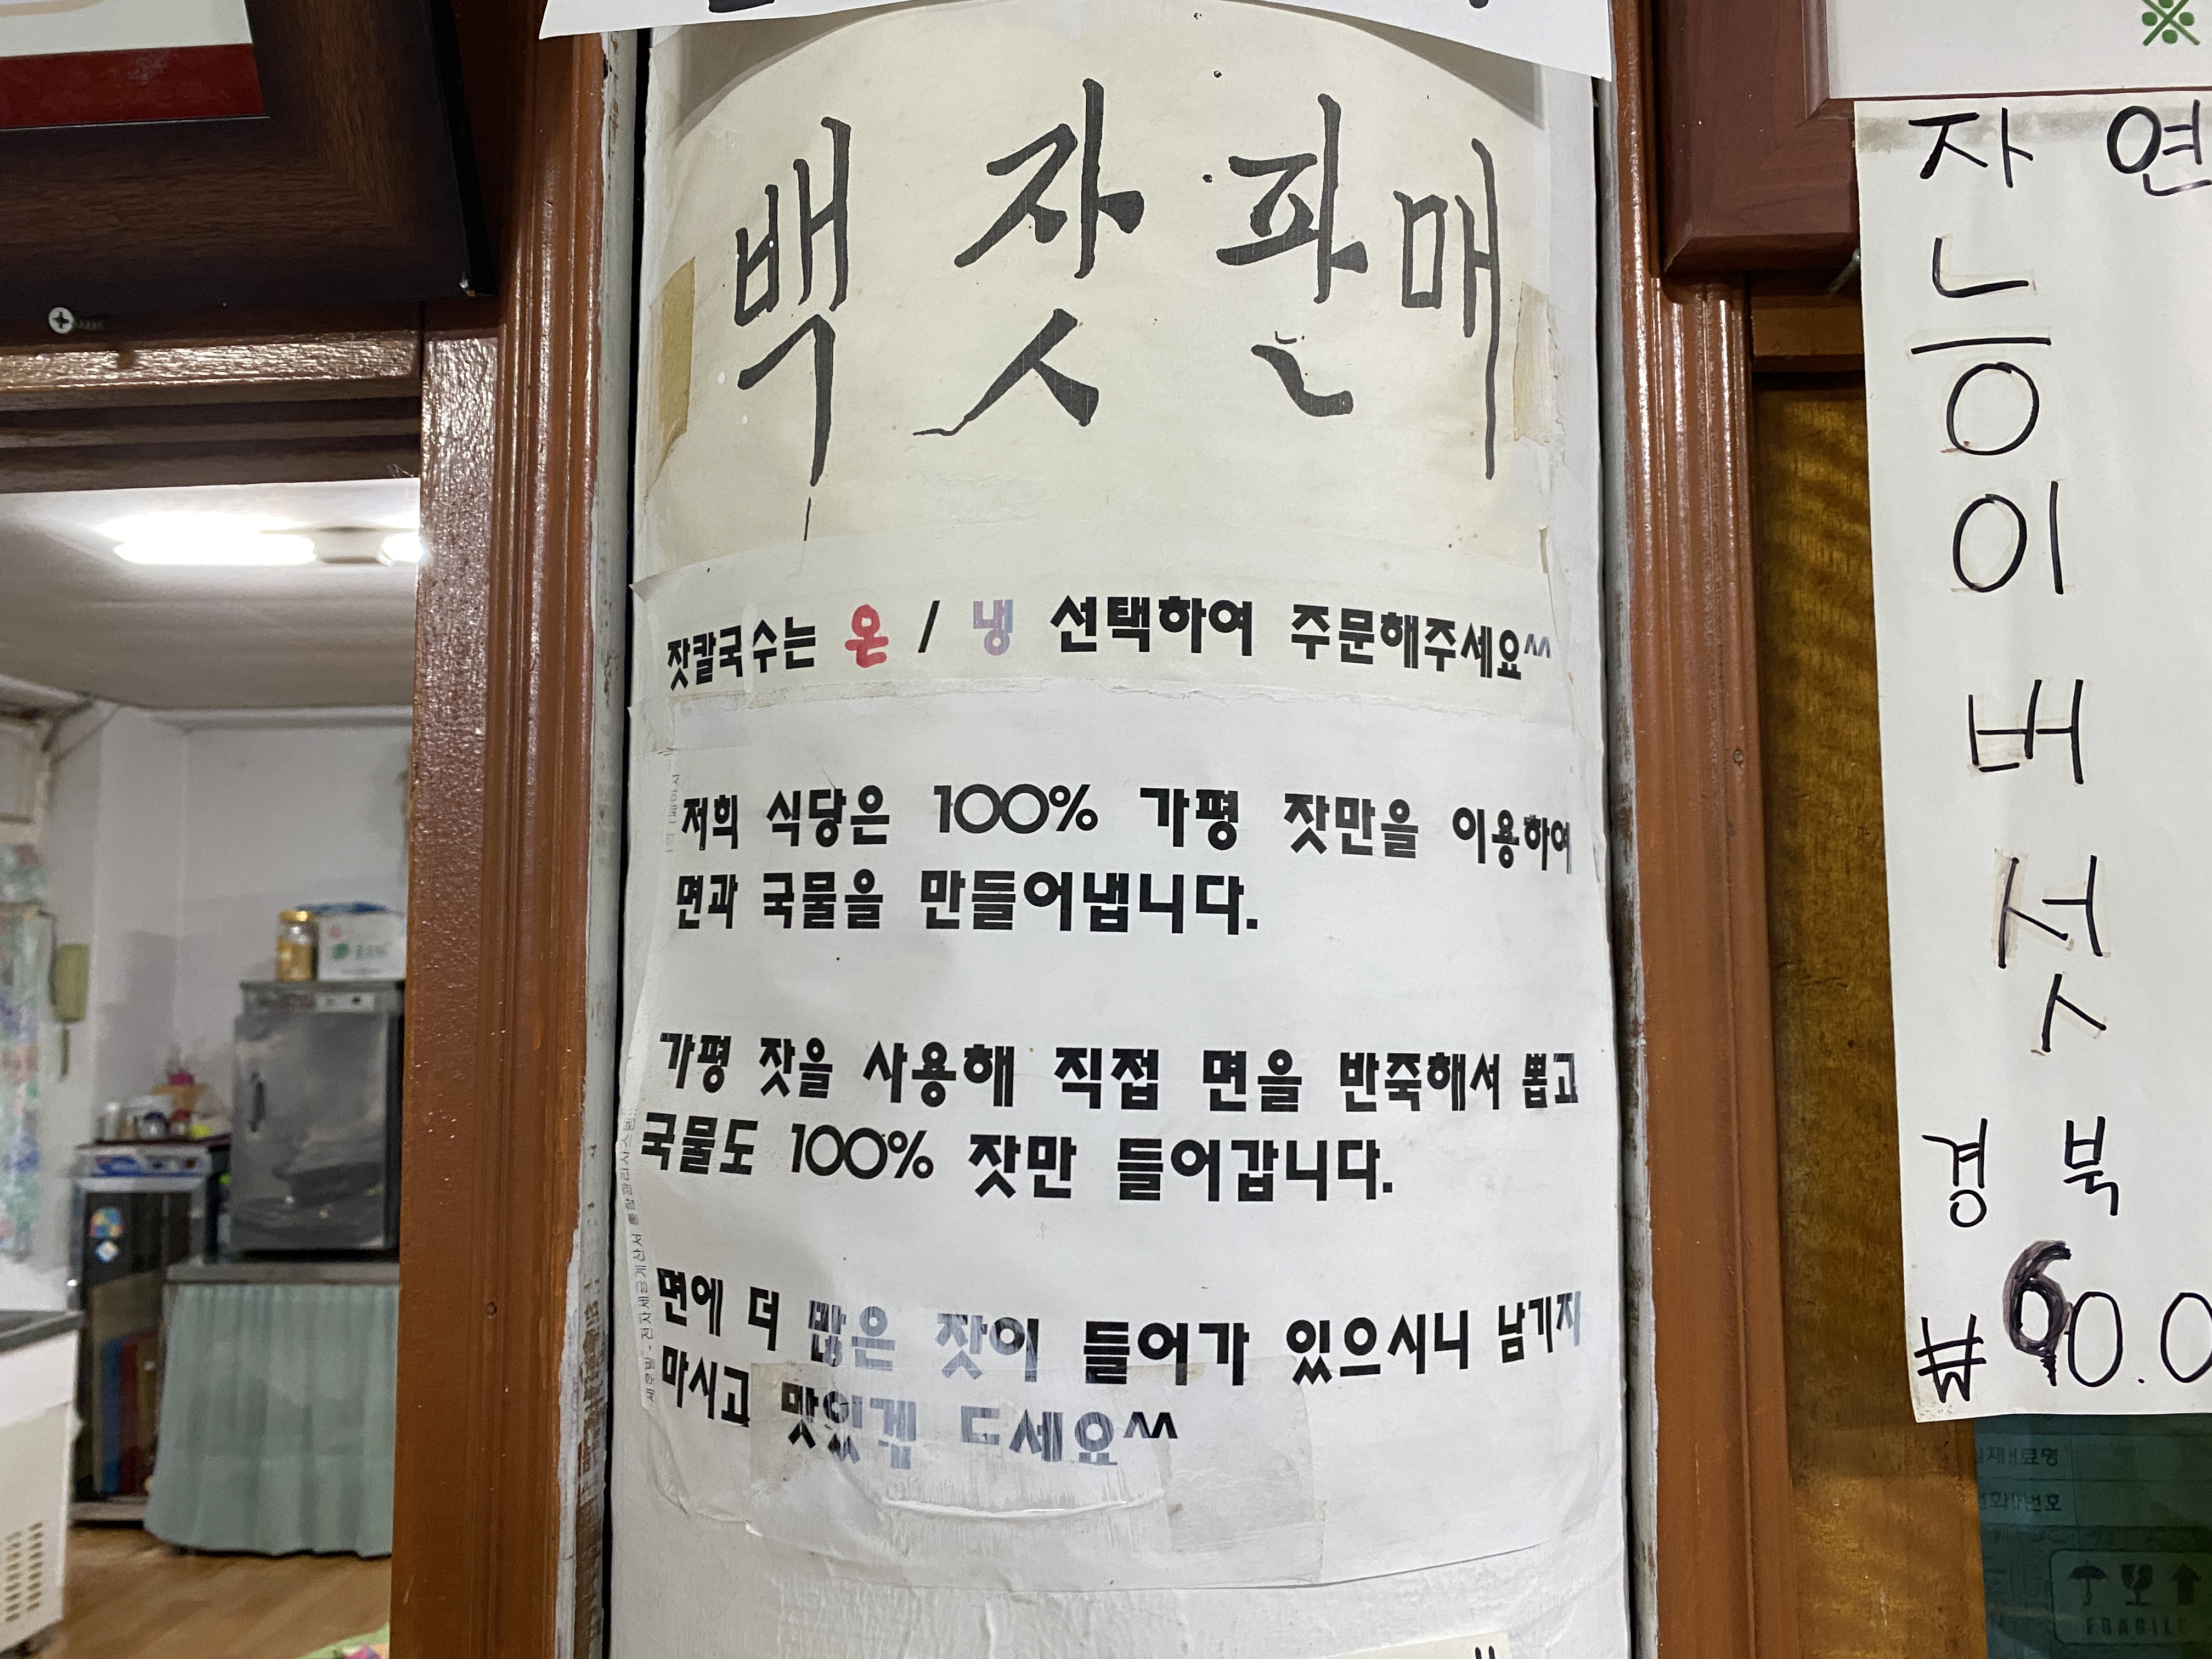 백잣판매
잣칼국수는 온 / 냉 선택하여 주문해주세요^^
저희 식당은 100% 가평 잣만을 이용하여
면과 국물을 만들어냅니다.
가평 잣을 사용해 직접 면을 반죽해서 뽑고
국물도 100% 잣만 들어갑니다.
면에 더 많은 잣이 들어가 있으시니 남기지
마시고 맛있게 드세요^^
※
자연
능
이
버
섯
경북
₩60.0
전화번호
FRAGILE